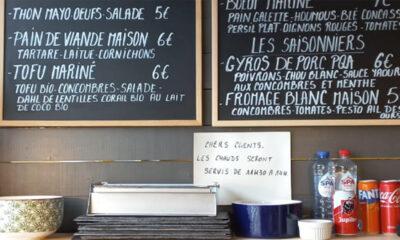 -THON MAYO-OEUFS-SALADE 5€
-PAIN DE VIANDE MAISON 6€
-TARTARE-LAITUE-CORNICHONS
-TOFU MARINÉ 6€
TOFU BIO-CONCOMBRES-SALADE-
DAHL DE LENTILLES CORAIL BIO AU LAIT
DE COCO BIO
BOEUF MARINÉ
PAIN GALETTE-HOUMOUS-BLÉ CONCASS
PERSIL PLAT-OIGNONS ROUGES-TOMATES
LES SAISONNIERS
-GYROS DE PORC PQA 6€
POIVRONS-CHOU BLANC-SAUCE YAOUR
AUX CONCOMBRES ET MENTHE
-FROMAGE BLANC MAISON 5
CONCOMBRES-TOMATES-PESTO AIL DES
OURS
CHERS CLIENTS.
LES CHAUDS SERONT
SERVIS DE 11H30 A 14H
SPA
SPA
Jupiler
FANTA
Coca